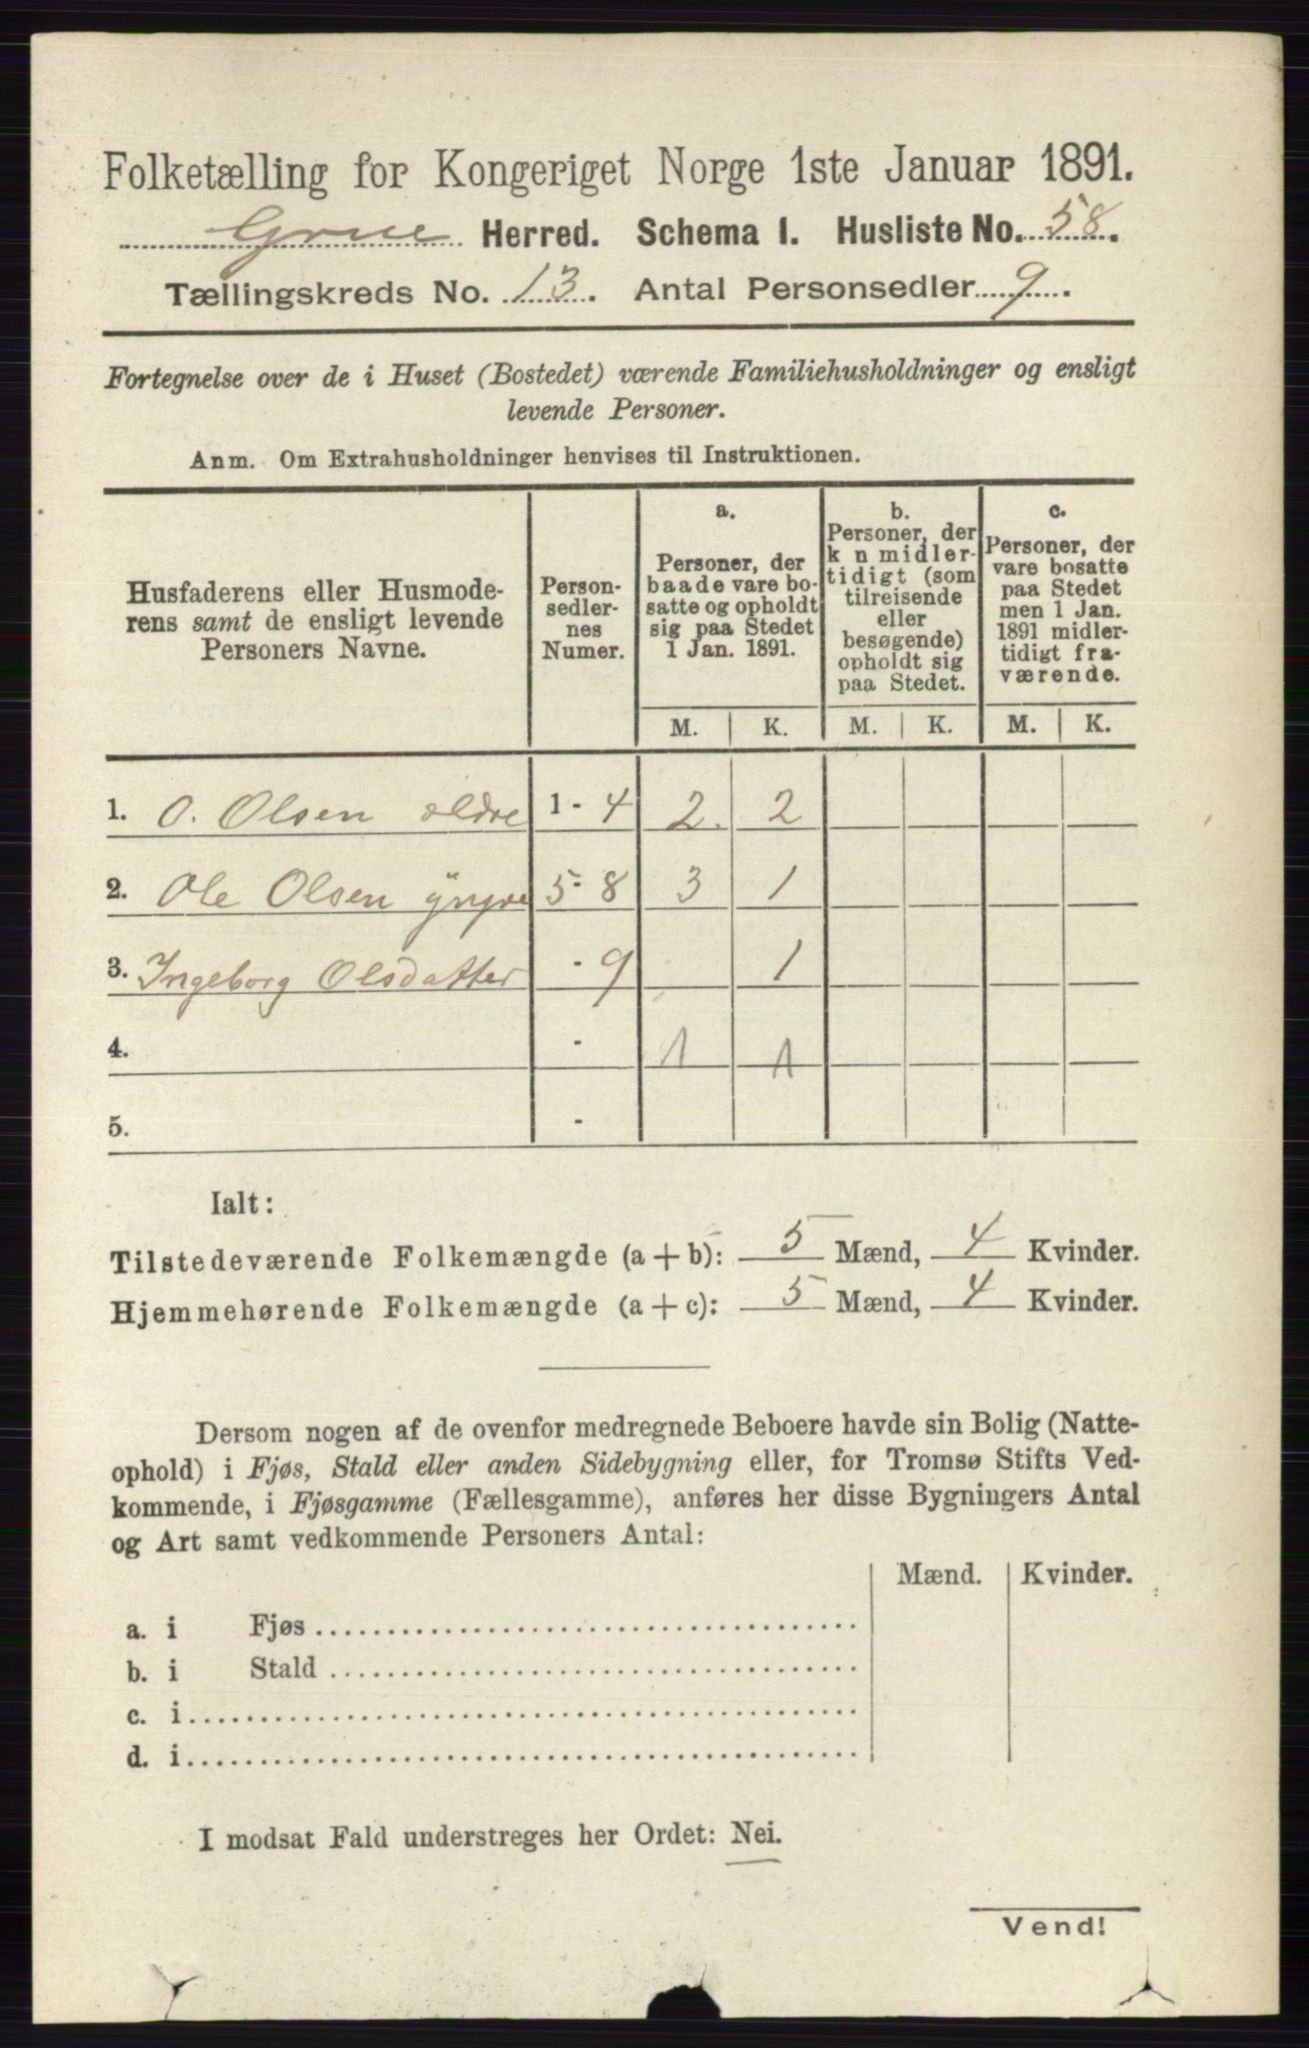 Folketælling for Kongeriget Norge 1ste Januar 1891.
Grue Herred. Schema I. Husliste No. 58.
Tællingskreds No. 13. Antal Personsedler 9.
Fortegnelse over de i Huset (Bostedet) værende Familiehusholdninger og ensligt
levende Personer.
Anm. Om Extrahusholdninger henvises til Instruktionen.
Husfaderens eller Husmode-
rens samt de ensligt levende
Personers Navne.
Person-
sedler-
nes
Numer.
a.
Personer, der
baade vare bo-
satte og opholdt
sig paa Stedet
1 Jan. 1891.
b.
Personer, der
k n midler-
tidigt (som
tilreisende
eller
besøgende)
opholdt sig
paa Stedet.
c.
Personer, der
vare bosatte
paa Stedet
men 1 Jan.
1891 midler-
tidigt fra-
værende.
M. K. M. K. M. K.
1. O. Olsen ældre 1 - 4 2. 2
2. Ole Olsen yngre 5 - 8 3 1
3. Ingeborg Olsdatter - 9 1
4. - 1 1
5. -
Ialt:
Tilstedeværende Folkemængde (a + b): 5 Mænd, 4 Kvinder.
Hjemmehørende Folkemængde (a + c): 5 Mænd, 4 Kvinder.
Dersom nogen af de ovenfor medregnede Beboere havde sin Bolig (Natte-
ophold) i Fjøs, Stald eller anden Sidebygning eller, for Tromsø Stifts Ved-
kommende, i Fjøsgamme (Fællesgamme), anføres her disse Bygningers Antal
og Art samt vedkommende Personers Antal:
Mænd. Kvinder.
a. i Fjøs
b. i Stald
c. i
d. i
I modsat Fald understreges her Ordet: Nei.
Vend!